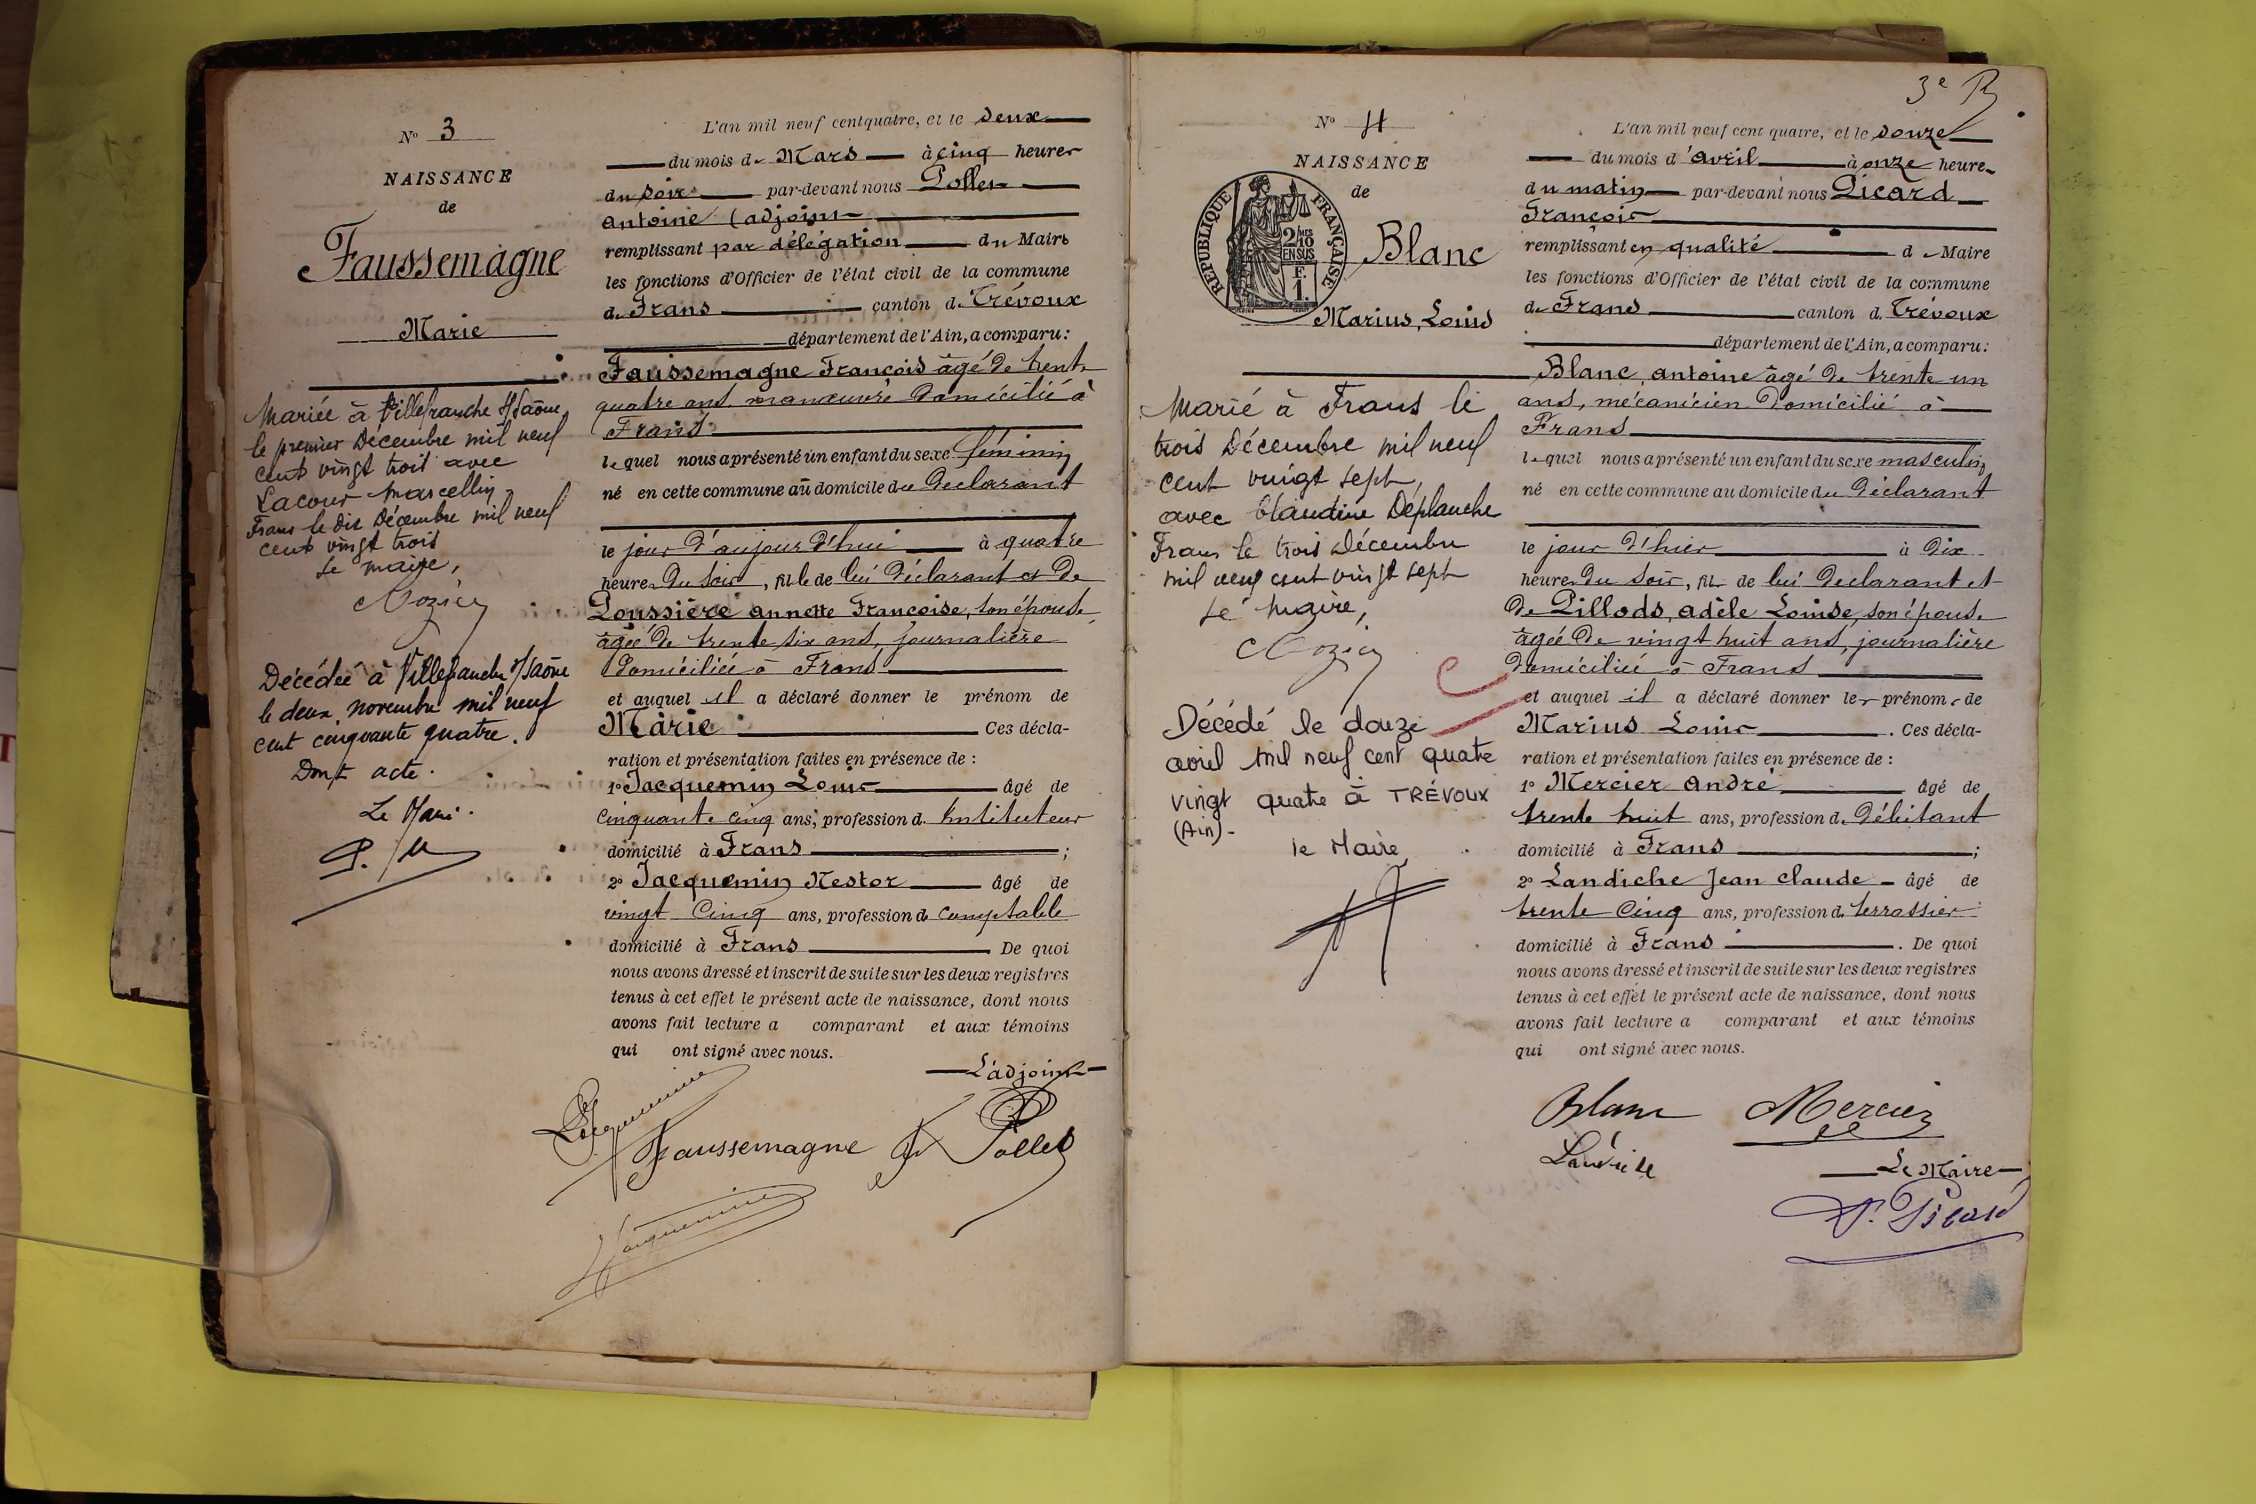 No 3
NAISSANCE
de
Faussemagne
Marie
Mariée à Villefranche s/Saône
le premier Décembre mil neuf
cent vingt trois avec
Lacour Marcellin
Frans le dix Décembre mil neuf
cent vingt trois
Le maire,
Décédée à Villefranche s/Saône
le deux novembre mil neuf
cent cinquante quatre.
Dont acte.
Le Maire.
L'an mil neuf cent quatre, et le deux
du mois de Mars à cinq heures
du soir par-devant nous Pollet
Antoine (adjoint
remplissant par délégation du Maire
les fonctions d'Officier de l'état civil de la commune
de Frans canton de Trévoux
département de l'Ain, a comparu:
Faussemagne François âgé de trente
quatre ans manœuvre domicilié à
Frans
lequel nous a présenté un enfant du sexe féminin
né en cette commune au domicile du déclarant
le jour d'aujourd'hui à quatre
heures du soir, fille de lui déclarant et de
Poussière Annette Françoise, son épouse
âgée de trente six ans, journalière
domiciliée à Frans
et auquel il a déclaré donner le prénom de
Marie Ces décla-
ration et présentation faites en présence de :
1º Jacquemin Louis âgé de
cinquante cinq ans, profession d. Instituteur
domicilié à Frans ;
2º Jacquemin Nestor âgé de
vingt cinq ans, profession de comptable
domicilié à Frans De quoi
nous avons dressé et inscrit de suite sur les deux registres
tenus à cet effet le présent acte de naissance, dont nous
avons fait lecture a comparant et aux témoins
qui ont signé avec nous.
L'adjoint
Jacquemin
Faussemagne Pollet
Jacquemin
3e
No 4
NAISSANCE
de
RÉPUBLIQUE FRANÇAISE
2/10 MES
EN SUS
F.
1.
Blanc
Marius, Louis
Marié à Frans le
trois Décembre mil neuf
cent vingt sept,
avec Claudine Déplanche
Frans le trois Décembre
mil neuf cent vingt sept
Le maire,
Décédé le douze
avril mil neuf cent quatre
vingt quatre à TRÉVOUX
(Ain)-
le Maire
L'an mil neuf cent quatre, et le douze
du mois d'avril à onze heures
du matin par-devant nous Picard
François
remplissant en qualité de Maire
les fonctions d'Officier de l'état civil de la commune
de Frans canton d. Trévoux
département de l'Ain, a comparu:
Blanc, Antoine âgé de trente un
ans, mécanicien domicilié à
Frans
lequel nous a présenté un enfant du sexe masculin
né en cette commune au domicile du déclarant
le jour d'hier à dix
heures du soir, fils de lui déclarant et
de Pillods, adèle Louise, son épouse
âgée de vingt huit ans, journalière
domiciliée à Frans
et auquel il a déclaré donner les prénoms de
Marius Louis . Ces décla-
ration et présentation faites en présence de :
1º Mercier André âgé de
trente huit ans, profession de débitant
domicilié à Frans ;
2º Landiche Jean Claude âgé de
trente cinq ans, profession d. terrassier
domicilié à Frans . De quoi
nous avons dressé et inscrit de suite sur les deux registres
tenus à cet effet le présent acte de naissance, dont nous
avons fait lecture a comparant et aux témoins
qui ont signé avec nous.
Blanc Mercier
Landiche
Le Maire
F. Picard